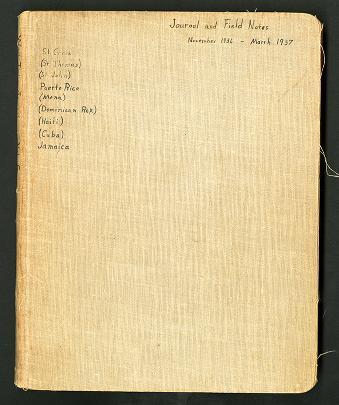 Journal and Field Notes
November 1936 - March 1937
St. Croix
(St. Thomas)
(St. John)
Puerto Rico
(Mona)
(Dominican Rep)
(Haiti)
(Cuba)
Jamaica